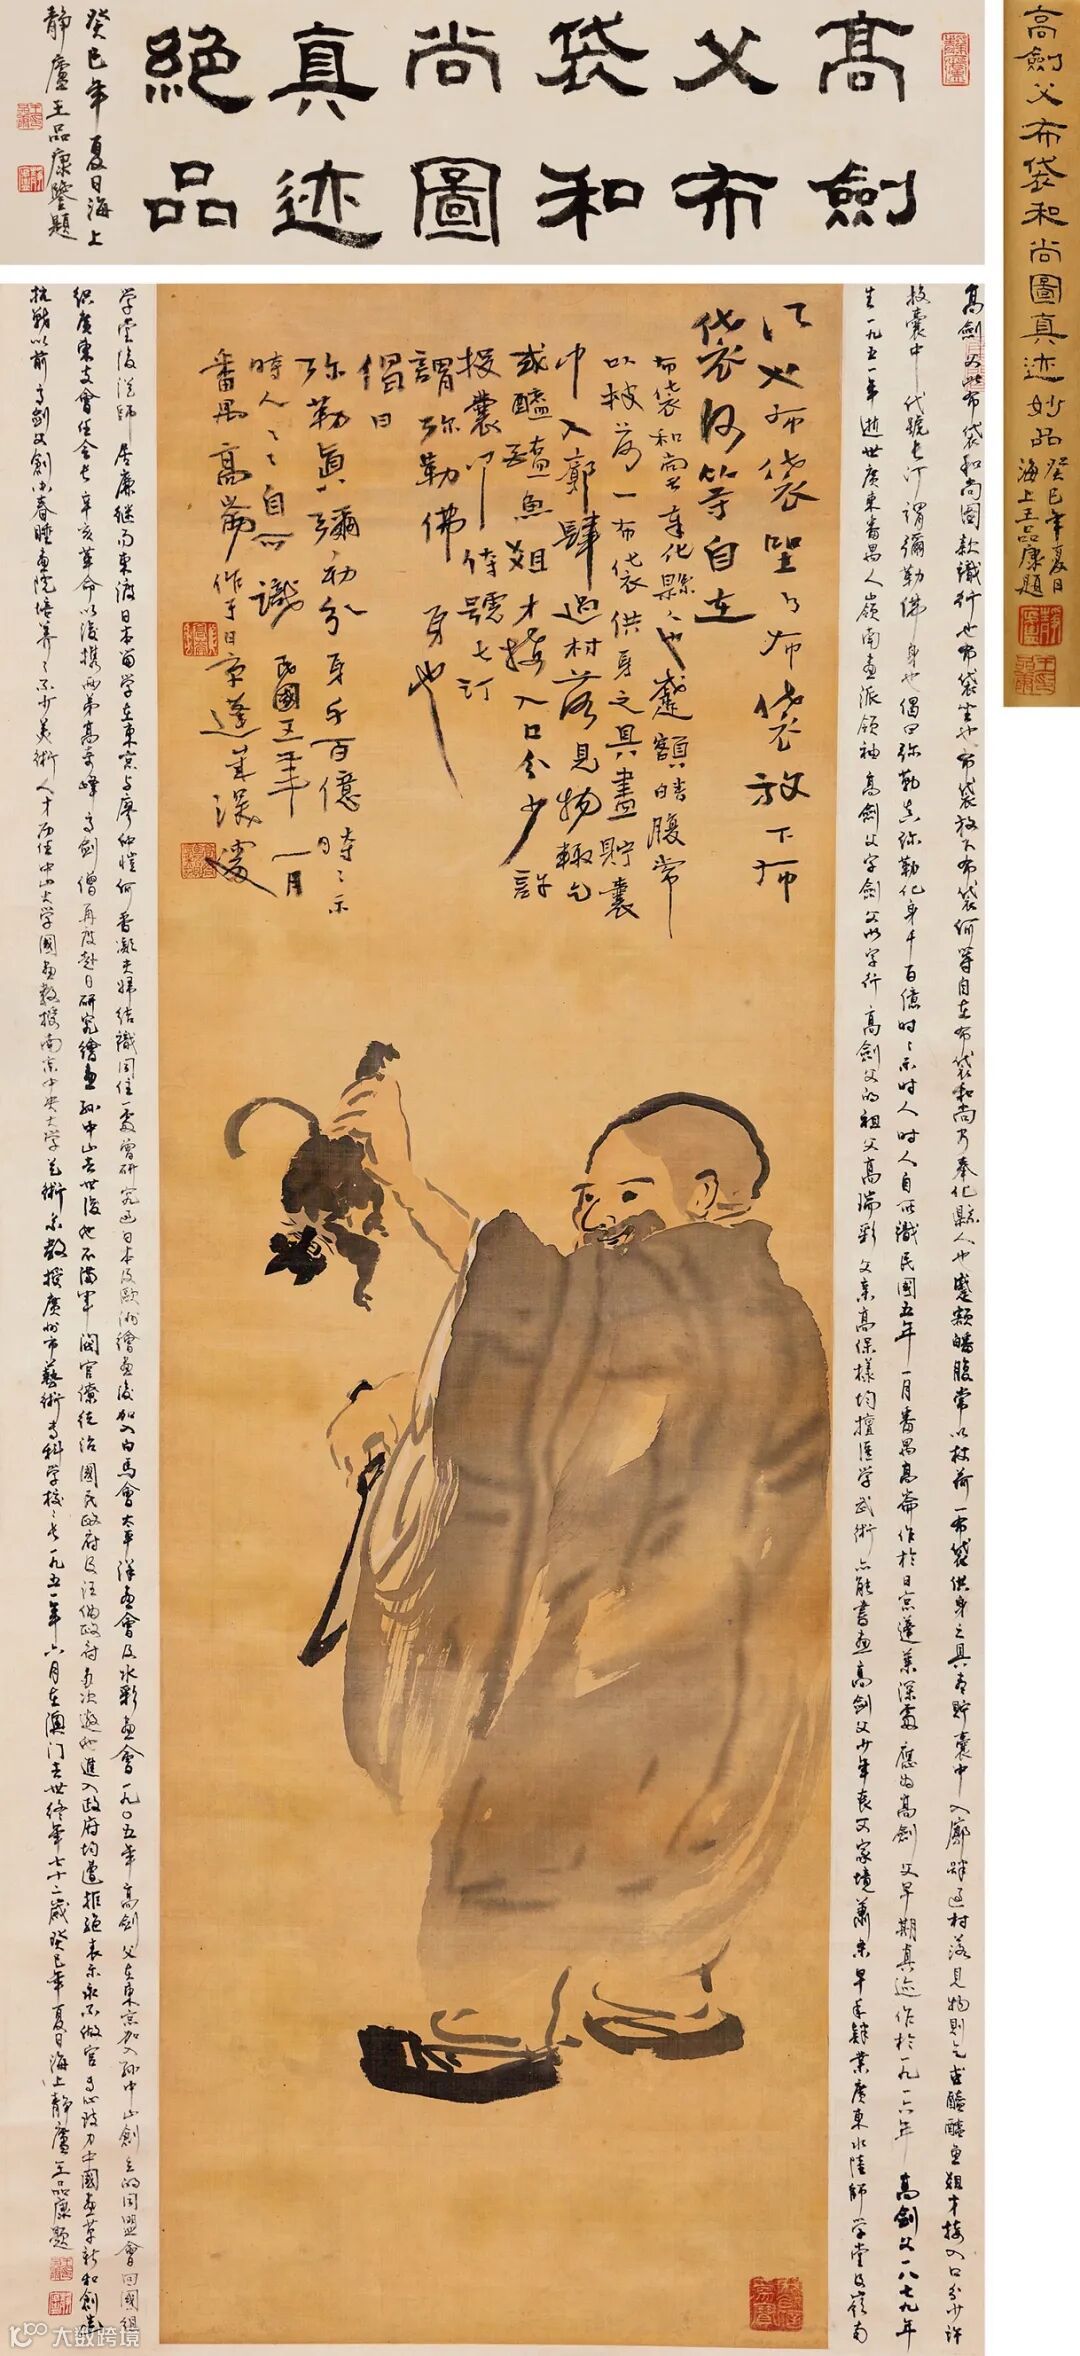 高劍
父布
袋和
尚圖
真迹
絕品
癸巳年夏日海上
靜廬王品康鑒題
高劍父布袋和尚圖真迹妙品
癸巳年夏日
海上王品康題
行也布袋坐也布袋放下布
袋何等自在
布袋和尚奉化縣人也蹙額皤腹常
以杖荷一布袋供身之具盡貯囊
中入廓肆過村落見物輒乞
或醯醢魚葅才接入口分少許
投囊中待號七汀
謂弥勒佛身也
偈曰
弥勒真彌勒分身千百億時時示
時人時人自不識民國五年一月
番禺高崙作于日京蓬萊深處
高劍父此布袋和尚圖款識行也布袋坐也布袋放下布袋何等自在布袋和尚乃奉化縣人也蹙額皤腹常以杖荷一布袋供身之具盡貯囊中入廓肆過村落見物則乞或醯醢魚葅才接入口分少許
投囊中代號長汀謂彌勒佛身也偈曰弥勒真弥勒化身千百億時時示時人時人自不識民國五年一月番禺高崙作於日京蓬萊深處應為高劍父早期真迹作於一九一六年高劍父一八七九年
生一九五一年逝世廣東番禺人嶺南畫派領袖高劍父字劍父以字行高劍父的祖父高瑞彩父亲高保樣均擅医学武術亦能書畫高劍父少年喪父家境蕭条早年肄業廣東水陸師学堂及嶺南
学堂後從師居廉繼而東渡日本留学在東京與廖仲愷何香凝夫婦結識同住一處曾研究過日本及歐洲繪畫後加入白馬會太平洋畫會及水彩畫會一九〇五年高劍父在東京加入孫中山創立的同盟會回國組
織廣東支會任會長辛亥革命以後携兩弟高奇峰高劍僧再度赴日研究繪畫孫中山去世後他不滿軍閥官僚統治國民政府及汪偽政府多次邀他進入政府均遭拒絕表示永不做官專心致力中國畫革新和創造
抗戰以前高劍父創辦春睡畫院培養了不少美術人才歷任中山大学國畫教授南京中央大学藝術系教授廣州市藝術專科学校校長一九五一年六月在澳门去世終年七十二歲癸巳年夏日海上靜廬王品康題
大数跨境